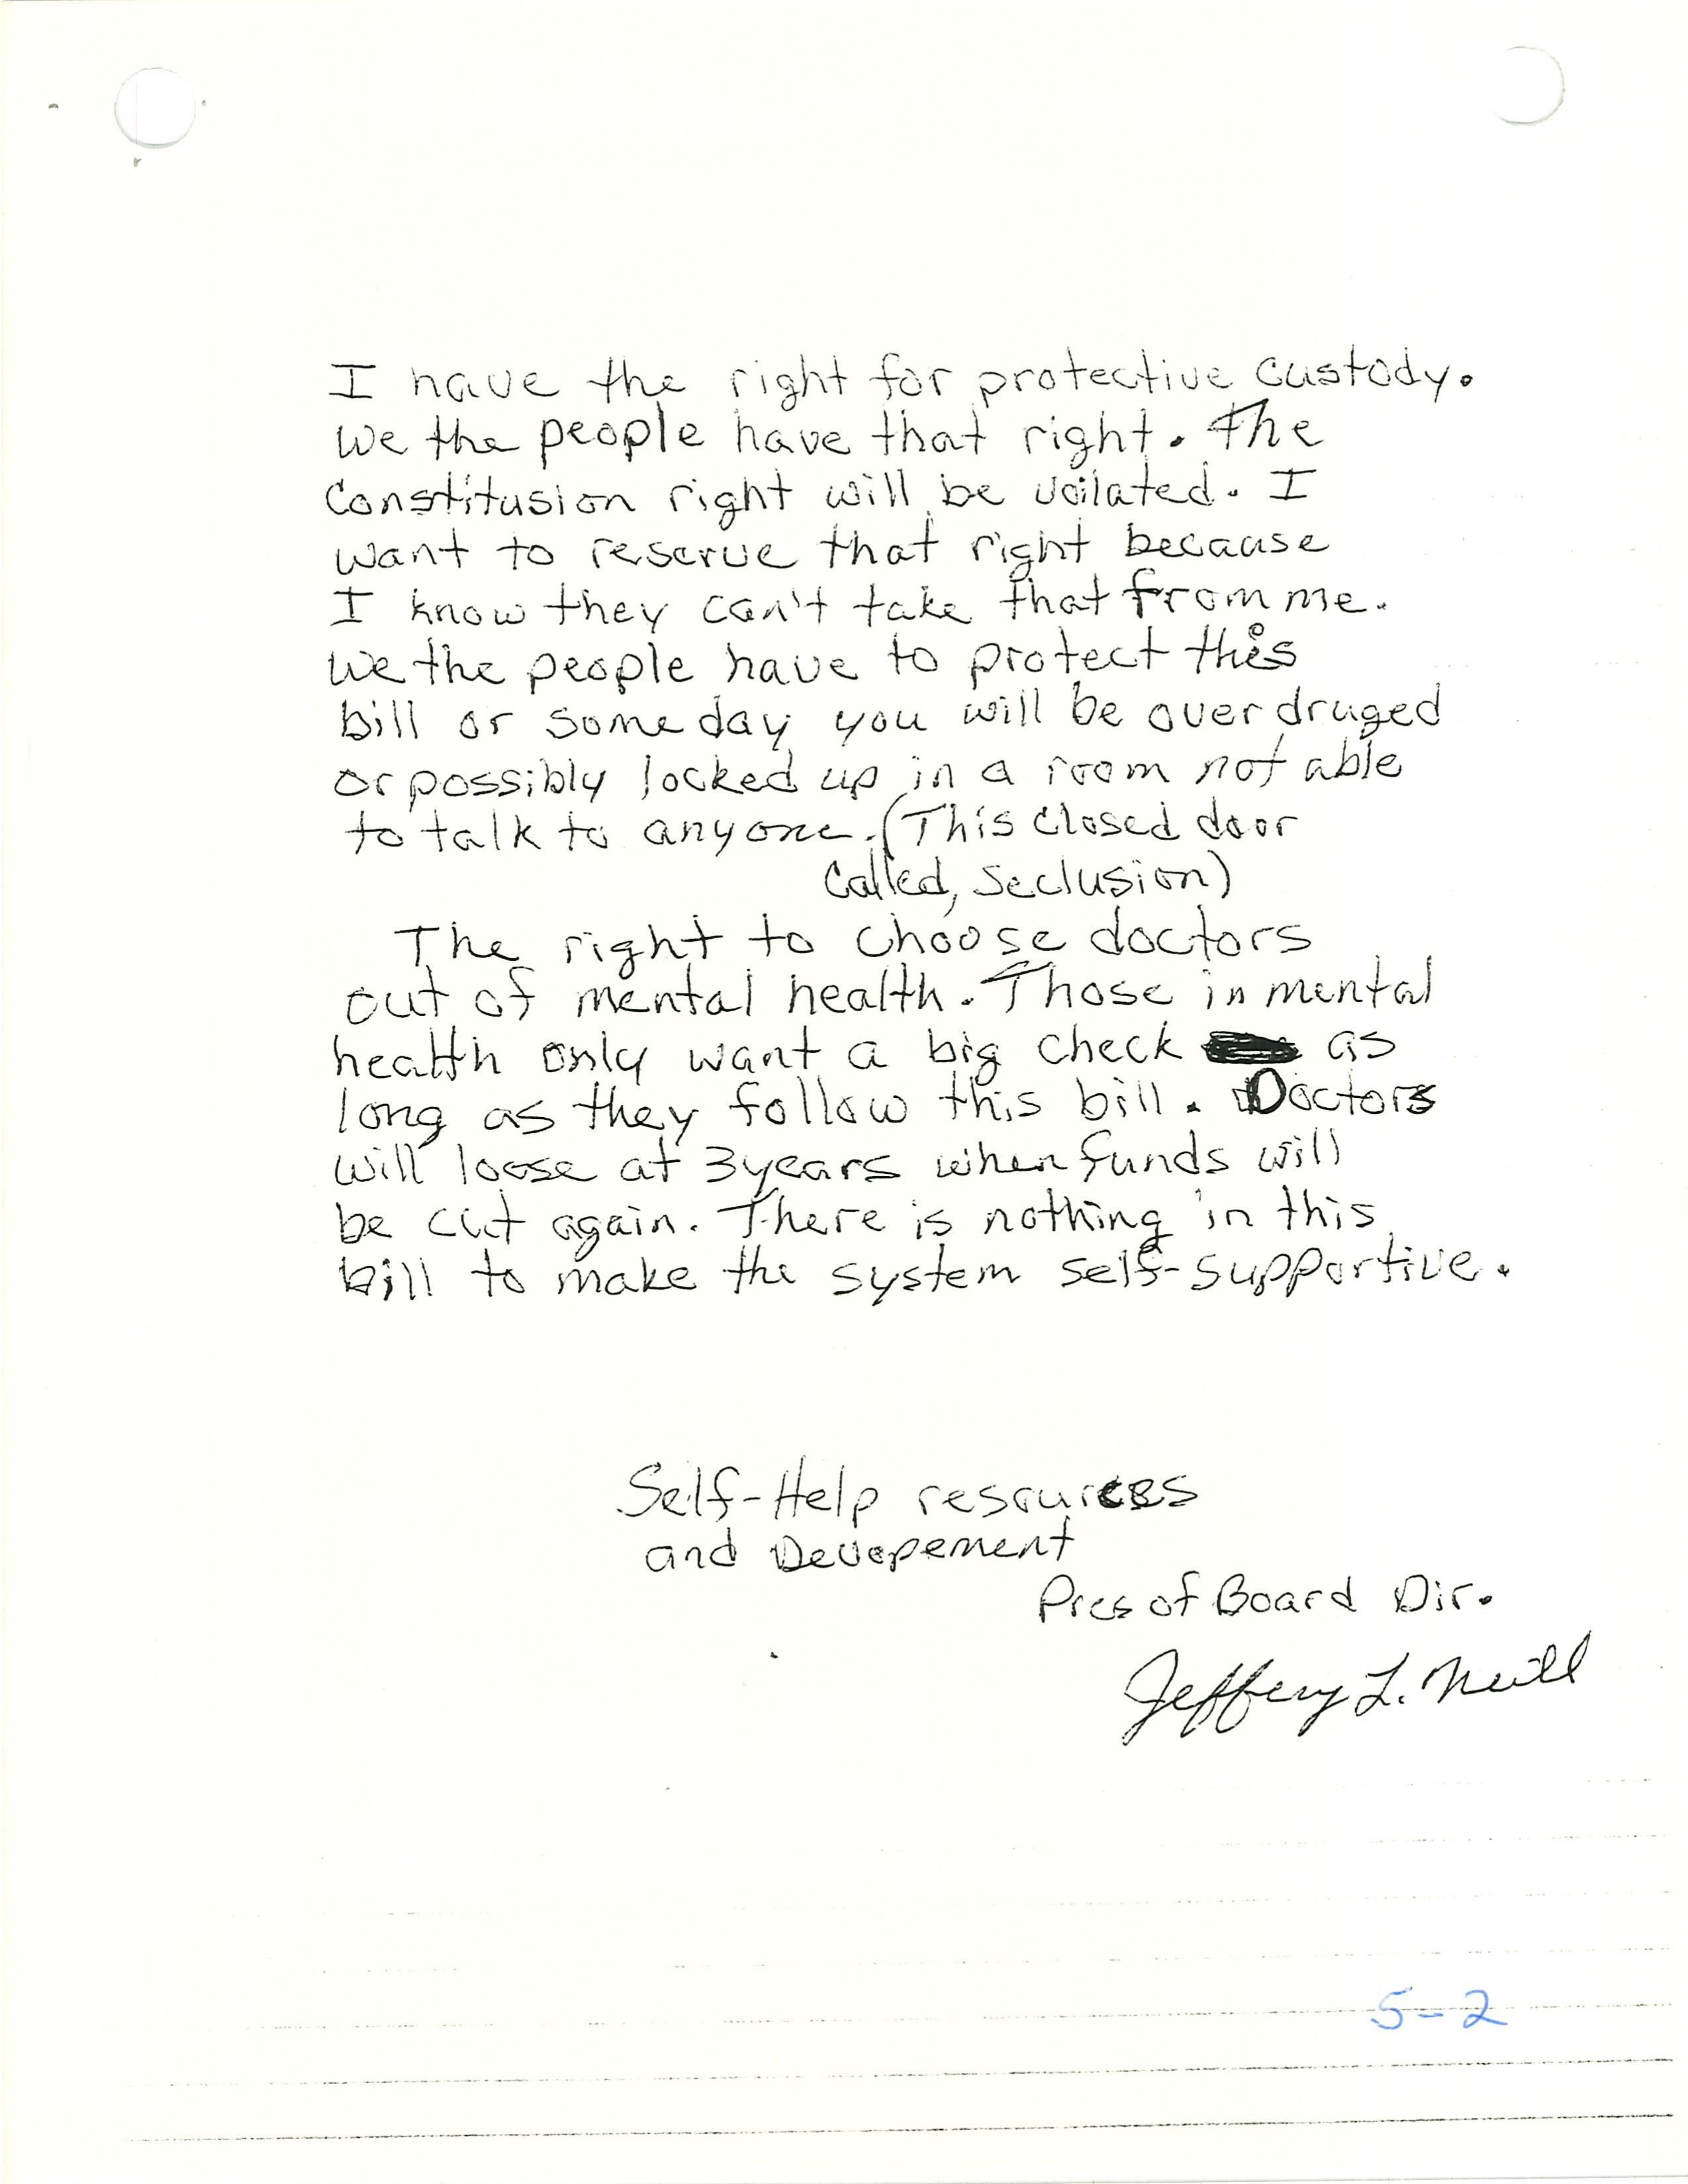 I have the right for protective custody.
We the people have that right. The
Constitusion right will be voilated. I
want to reserve that right because
I know they can't take that from me.
We the people have to protect this
bill or someday you will be over druged
or possibly locked up in a room not able
to talk to anyone. (This closed door
Called, Seclusion)
The right to choose doctors
out of mental health. Those in mental
health only want a big check as
long as they follow this bill. Doctors
will loose at 3 years when funds will
be cut again. There is nothing in this
bill to make the system self-supportive.
Self-Help resources
and Devopement
Pres of Board Dir.
Jeffery L. Neill
5-2